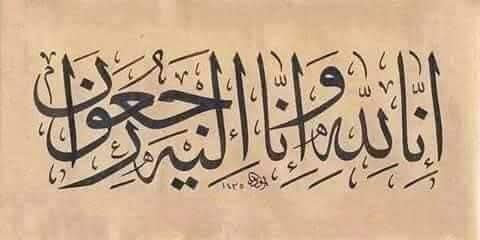 إِنَّا لِلَّهِ وَإِنَّا إِلَيْهِ رَاجِعُونَ
١٤٣٥